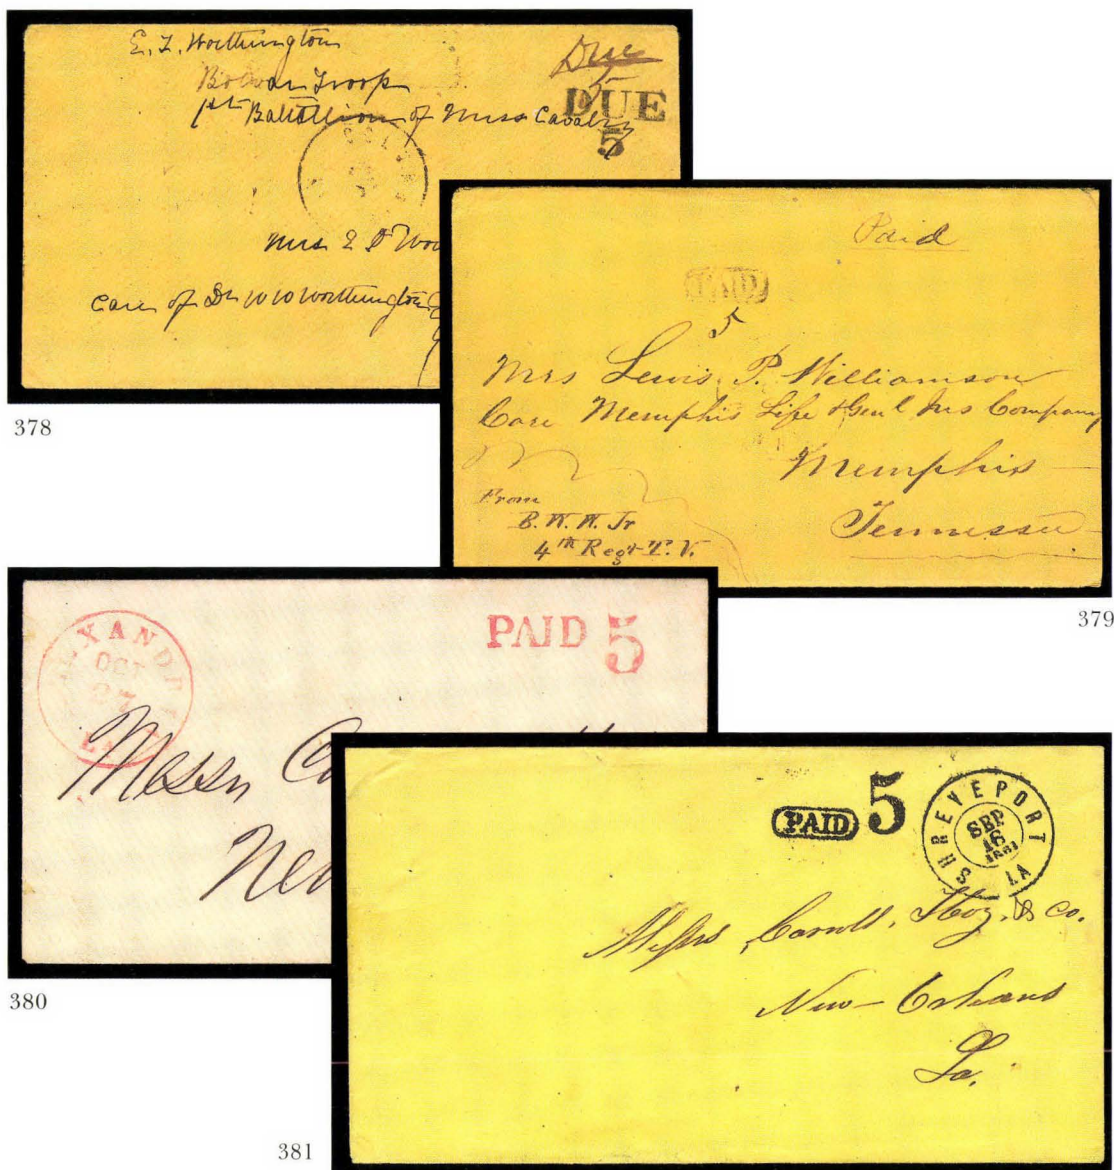 E. T. Worthington
Troop
1st Battallion of Miss Cavalry
Due
5
DUE
5
COLUMB
Mrs
Care of Dr W W Worthington
378
Paid
PAID
5
Mrs Lewis P. Williamson
Care Memphis Life & Genl Ins Company
Memphis
Tennessee
From
B. W. W. Jr
4th Regt T. V.
379
ALEXANDRIA
OCT
27
LA
PAID 5
Messrs
380
PAID 5
SHREVEPORT
SEP
16
1861
LA
Messrs Carroll, Hoy, & Co.
New Orleans
La.
381